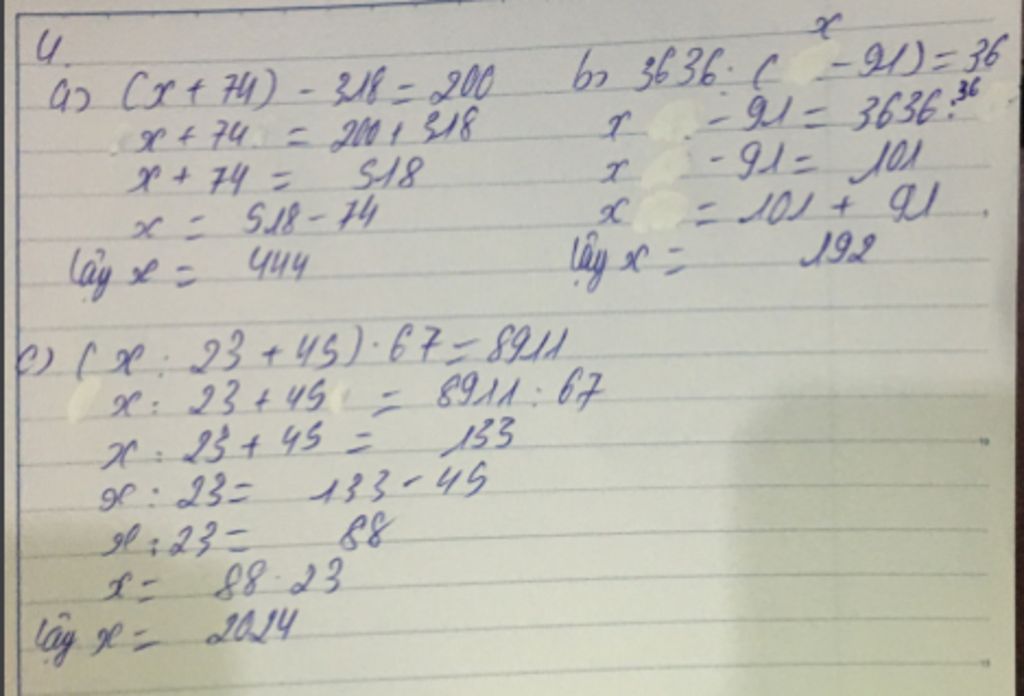 4.
a) (x + 74) - 318 = 200
x + 74 = 200 + 318
x + 74 = 518
x = 518 - 74
Vậy x = 444
b) 3636 : (x - 91) = 36
x - 91 = 3636 : 36
x - 91 = 101
x = 101 + 91
Vậy x = 192
c) (x : 23 + 45) . 67 = 8911
x : 23 + 45 = 8911 : 67
x : 23 + 45 = 133
x : 23 = 133 - 45
x : 23 = 88
x = 88 . 23
Vậy x = 2024